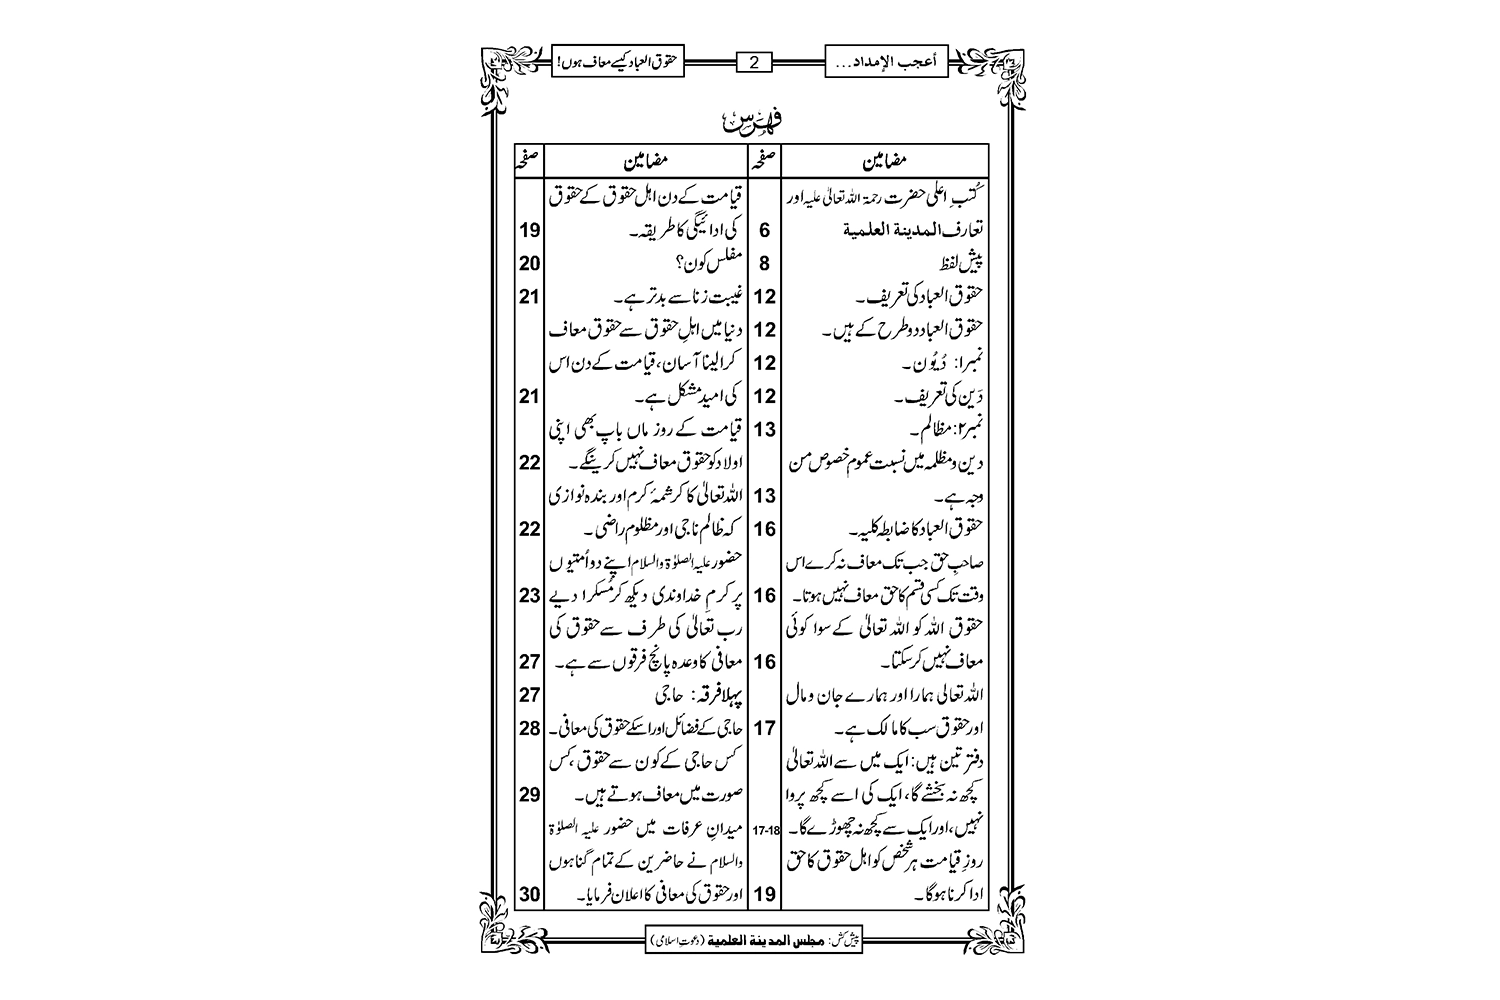 أعجب الإمداد...
2
حقوق العباد کیسے معاف ہوں!
فہرس
مضامین صفحہ
کُتبِ اعلیٰ حضرت رحمۃ اللہ تعالیٰ علیہ اور
تعارف المدینۃ العلمیۃ 6
پیش لفظ 8
حقوق العباد کی تعریف۔ 12
حقوق العباد دو طرح کے ہیں۔ 12
نمبر۱: دُیُون۔ 12
دَین کی تعریف۔ 12
نمبر۲: مظالم۔ 13
دین و مظلمہ میں نسبت عموم خصوص من
وجہ ہے۔ 13
حقوق العباد کا ضابطہ کلیہ۔ 16
صاحبِ حق جب تک معاف نہ کرے اس
وقت تک کسی قسم کا حق معاف نہیں ہوتا۔ 16
حقوق اللہ کو اللہ تعالیٰ کے سوا کوئی
معاف نہیں کرسکتا۔ 16
اللہ تعالی ہمارا اور ہمارے جان و مال
اور حقوق سب کا مالک ہے۔ 17
دفتر تین ہیں: ایک میں سے اللہ تعالیٰ
کچھ نہ بخشے گا، ایک کی اسے کچھ پروا
نہیں، اور ایک سے کچھ نہ چھوڑے گا۔ 17-18
روزِ قیامت ہر شخص کو اہل حقوق کا حق
ادا کرنا ہوگا۔ 19
مضامین صفحہ
قیامت کے دن اہل حقوق کے حقوق
کی ادائیگی کا طریقہ۔ 19
مفلس کون؟ 20
غیبت زنا سے بدتر ہے۔ 21
دنیا میں اہلِ حقوق سے حقوق معاف
کرالینا آسان، قیامت کے دن اس
کی امید مشکل ہے۔ 21
قیامت کے روز ماں باپ بھی اپنی
اولاد کو حقوق معاف نہیں کرینگے۔ 22
اللہ تعالیٰ کا کرشمۂ کرم اور بندہ نوازی
کہ ظالم ناجی اور مظلوم راضی۔ 22
حضور علیہ الصلوٰۃ والسلام اپنے دو اُمتیوں
پر کرمِ خداوندی دیکھ کر مُسکرا دیے 23
رب تعالیٰ کی طرف سے حقوق کی
معافی کا وعدہ پانچ فرقوں سے ہے۔ 27
پہلا فرقہ: حاجی 27
حاجی کے فضائل اور اسکے حقوق کی معافی۔ 28
کس حاجی کے کون سے حقوق، کس
صورت میں معاف ہوتے ہیں۔ 29
میدانِ عرفات میں حضور علیہ الصلوٰۃ
والسلام نے حاضرین کے تمام گناہوں
اور حقوق کی معافی کا اعلان فرمایا۔ 30
پیش کش: مجلس المدینۃ العلمیۃ (دعوتِ اسلامی)